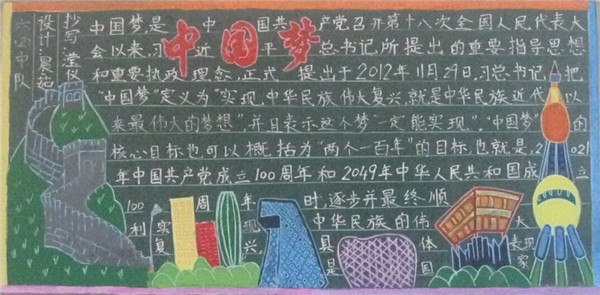 六四中队
设计
抄写
中国梦
中国梦是 中 国共 产党召开第十八次全国人民代表大
会以来,习 近 平 总书记所提出的重要指导思想
和重要执政理念,正式提出于2012年11月29日.习总书记把
“中国梦”定义为“实现中华民族伟大复兴,就是中华民族近代以
来最伟大的梦想”,并且表示这个梦“一定能实现”。“中国梦”的
核心目标也可以概括为“两个一百年”的目标,也就是:2021
年中国共产党成立100周年和2049年中华人民共和国成立
100 周 年 时,逐步并最终顺
利 实 现 中华民族的伟 大
复 兴, 具 体 表现
是 国 家